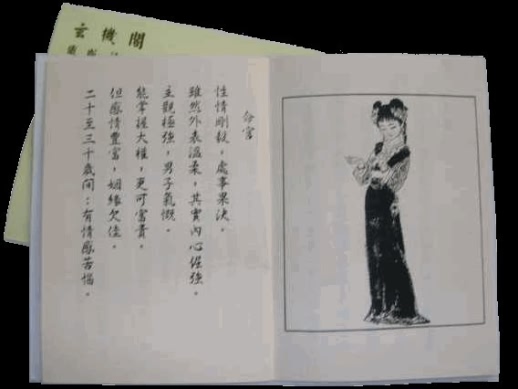 玄機閣
命宮
性情剛毅，處事果決。
雖然外表溫柔，其實內心倔強。
主觀極強，男子氣慨。
能掌握大權，更可富貴。
但感情豐富，姻緣欠佳。
二十至三十歲間：有情感苦惱。